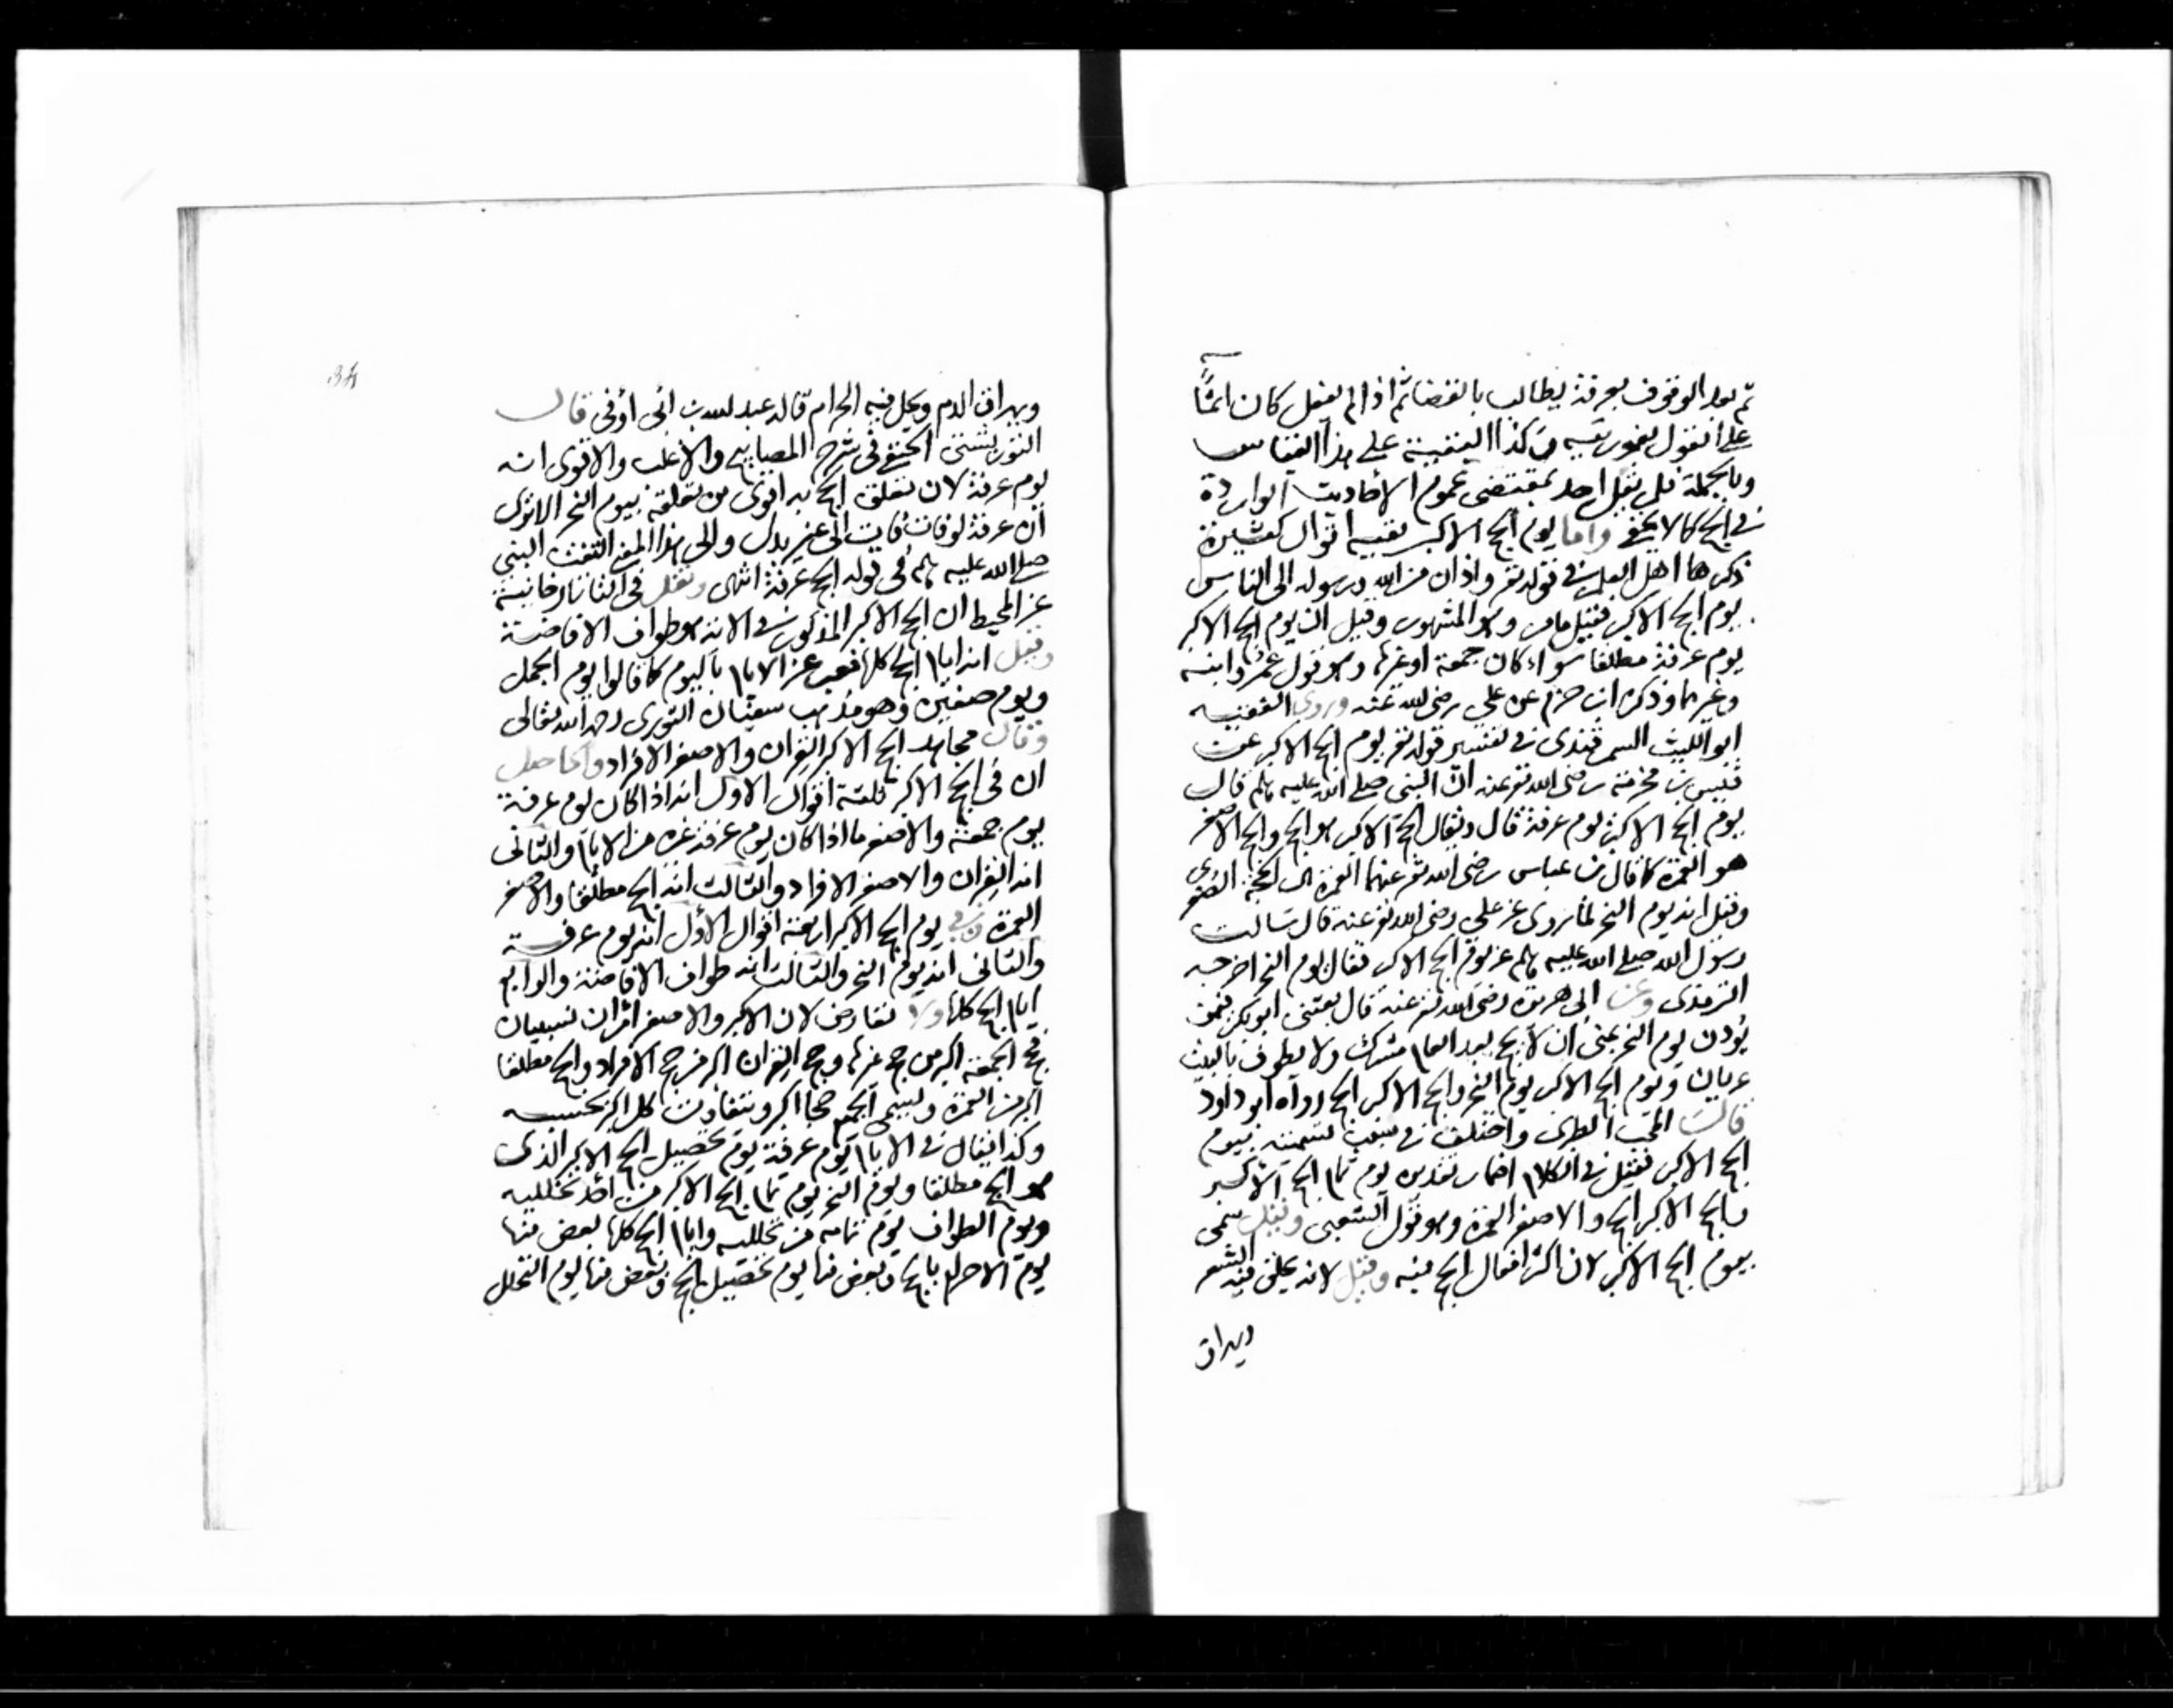 ثم بعد الوقوف بعرفة يطالب بالقضا ثم اذا لم يفعل كان اثمًا
على القول بفوريته وكذا البقية على هذا القياس
وبالجملة فلم يقل احد بمقتضى عموم الاحاديث الواردة
في الحج كما لا يخفى واما يوم الحج الاكبر ففيه اقوال كثيرة
ذكرها اهل العلم في قوله تع واذان من الله ورسوله الى الناس
يوم الحج الاكبر فقيل مامر وهو المشهور وقيل ان يوم الحج الاكبر
يوم عرفة مطلقا سواء كان جمعة او غيرها وهو قول عمر وابنه
وغيرهما وذكره ابن حزم عن علي رضى الله عنه وروى الفقيه
ابو الليث السمرقندى في تفسير قوله تع يوم الحج الاكبر عن
قيس بن مخرمة رضى الله تع عنه ان النبي صلى الله عليه وسلم قال
يوم الحج الاكبر يوم عرفة قال ويقال الحج الاكبر هو الحج والحج الاصغر
هو العمرة كما قال بن عباس رضى الله تع عنهما العمرة الحجة الصغرى
وقيل انه يوم النحر لما روى عن علي رضى الله تع عنه قال سالت
رسول الله صلى الله عليه وسلم عن يوم الحج الاكبر فقال يوم النحر اخرجه
الترمذى وعن ابى هريرة رضى الله تع عنه قال بعثنى ابو بكر فيمن
يؤذن يوم النحر بمنى ان لا يحج بعد العام مشرك ولا يطوف بالبيت
عريان ويوم الحج الاكبر يوم النحر والحج الاكبر الحج رواه ابو داود
قالت المحب الطبرى واختلف في سبب تسميته بيوم
الحج الاكبر فقيل في الكلام اضمار تقديره يوم تمام الحج الاكبر
والحج الاكبر الحج والاصغر العمرة وهو قول الشعبى وقيل سمى
بيوم الحج الاكبر لان اكثر افعال الحج فيه وقيل لانه يحلق فيه الشعر
ويهراق
34
ويهراق الدم ويحل فيه الحرام قاله عبد الله بن ابى أوفى قال
التوربشتى الحنفى فى شرح المصابيح والاغلب والاقوى انه
يوم عرفة لان تعلق الحج به اقوى من تعلقه بيوم النحر الا ترى
ان عرفة لو فات فات الى غير بدل والى هذا المعنى التفت النبي
صلى الله عليه وسلم فى قوله الحج عرفة انتهى ونقل فى التاتارخانية
عن المحيط ان الحج الاكبر المذكور في الاية هو طواف الافاضة
وقيل انه ايام الحج كلها فعبر عن الايام باليوم كما قالوا يوم الجمل
ويوم صفين وهو مذهب سفيان الثورى رحمه الله تعالى
وقال مجاهد الحج الاكبر القران والاصغر الافراد والحاصل
ان فى الحج الاكبر ثلثة اقوال الاول انه اذا كان يوم عرفة
يوم جمعة والاصغر ما اذا كان يوم عرفة غيره من الايام والثانى
انه القران والاصغر الافراد والثالث انه الحج مطلقا والاصغر
العمرة وفي يوم الحج الاكبر اربعة اقوال الاول انه يوم عرفة
والثانى انه يوم النحر والثالث انه طواف الافاضة والرابع
ايام الحج كلها ولا تعارض لان الاكبر والاصغر امران نسبيان
فحج الجمعة اكبر من حج غيرها وحج القران اكبر من حج الافراد والحج مطلقا
اكبر من العمرة ويسمى الجميع حجا اكبر ويتفاوت كل اكبر بحسبه
وكذا يقال في الايام يوم عرفة يوم تحصيل الحج الاكبر الذى
هو الحج مطلقا ويوم النحر يوم تمام الحج الاكبر من احد تحلليه
ويوم الطواف يوم تمامه من تحلليه وايام الحج كلها بعض منها
يوم الاحرام بالحج وبعض منها يوم تحصيل الحج وبعض منها يوم التحلل